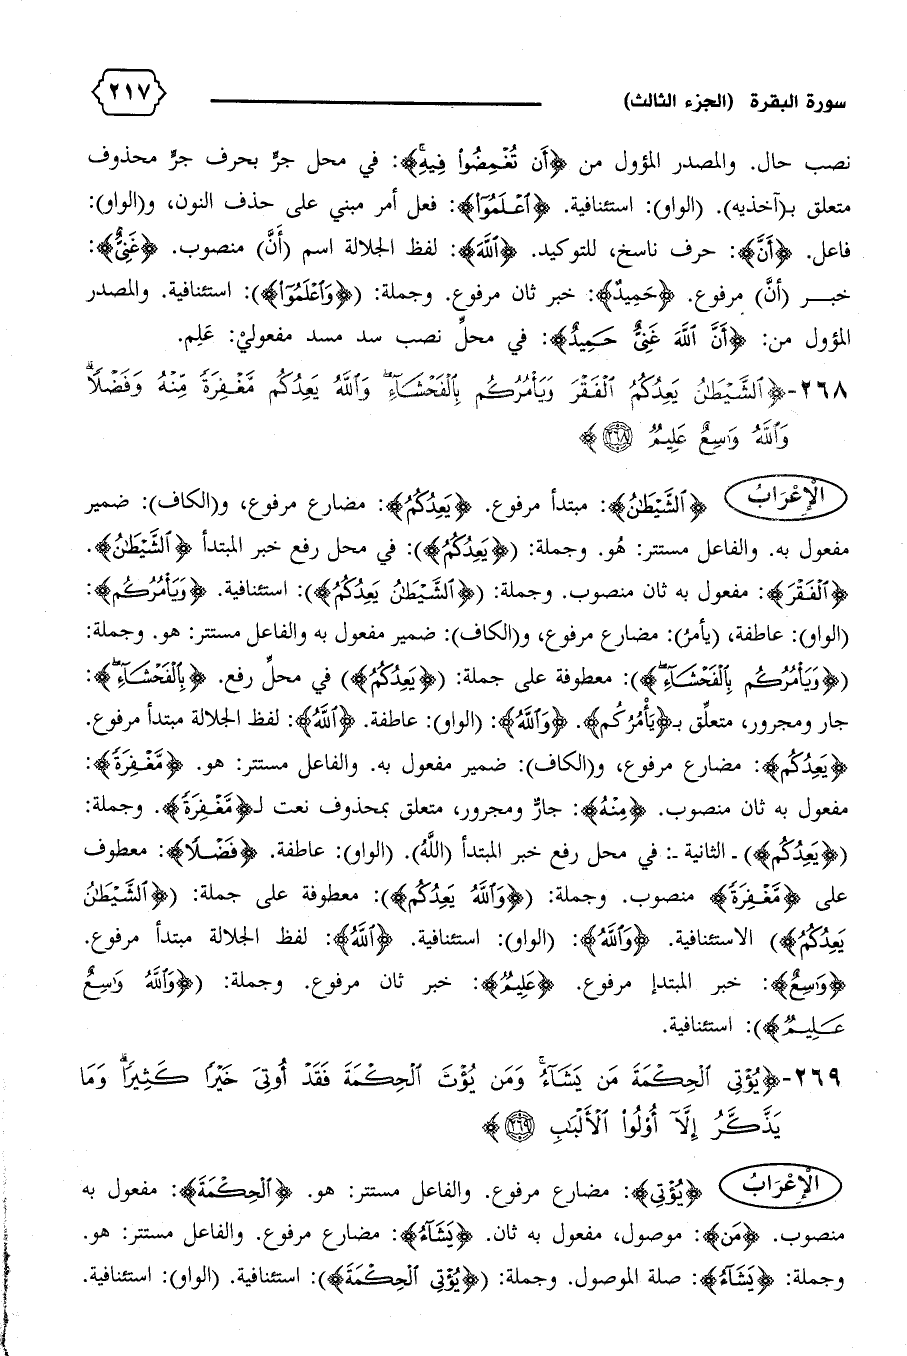 سورة البقرة (الجزء الثالث) ٢١٧
نصب حال. والمصدر المؤول من ﴿أَن تُغْمِضُوا۟ فِيهِ﴾: في محل جرٍّ بحرف جرٍّ محذوف
متعلق بـ(آخذيه). (الواو): استئنافية. ﴿ٱعْلَمُوٓا۟﴾: فعل أمر مبني على حذف النون، و(الواو):
فاعل. ﴿أَنَّ﴾: حرف ناسخ، للتوكيد. ﴿ٱللَّهَ﴾: لفظ الجلالة اسم (أَنَّ) منصوب. ﴿غَنِىٌّ﴾:
خبـر (أنَّ) مرفوع. ﴿حَمِيدٌ﴾: خبر ثان مرفوع. وجملة: (﴿وَٱعْلَمُوٓا۟﴾): استئنافية. والمصدر
المؤول من: ﴿أَنَّ ٱللَّهَ غَنِىٌّ حَمِيدٌ﴾: في محلِّ نصب سد مسد مفعوليْ: عَلِم.
٢٦٨-﴿ٱلشَّيْطَـٰنُ يَعِدُكُمُ ٱلْفَقْرَ وَيَأْمُرُكُم بِٱلْفَحْشَآءِ ۖ وَٱللَّهُ يَعِدُكُم مَّغْفِرَةً مِّنْهُ وَفَضْلًا ۗ
وَٱللَّهُ وَٰسِعٌ عَلِيمٌ ﴿٢٦٨﴾﴾
الْإِعْرَابُ ﴿ٱلشَّيْطَـٰنُ﴾: مبتدأ مرفوع. ﴿يَعِدُكُمُ﴾: مضارع مرفوع، و(الكاف): ضمير
مفعول به. والفاعل مستتر: هُو. وجملة: (﴿يَعِدُكُمُ﴾): في محل رفع خبر المبتدأ ﴿ٱلشَّيْطَـٰنُ﴾.
﴿ٱلْفَقْرَ﴾: مفعول به ثان منصوب. وجملة: (﴿ٱلشَّيْطَـٰنُ يَعِدُكُمُ﴾): استئنافية. ﴿وَيَأْمُرُكُم﴾:
(الواو): عاطفة، (يأمرُ): مضارع مرفوع، و(الكاف): ضمير مفعول به والفاعل مستتر: هو. وجملة:
(﴿وَيَأْمُرُكُم بِٱلْفَحْشَآءِ ۖ﴾): معطوفة على جملة: (﴿يَعِدُكُمُ﴾) في محلِّ رفع. ﴿بِٱلْفَحْشَآءِ ۖ﴾:
جار ومجرور، متعلِّق بـ﴿يَأْمُرُكُم﴾. ﴿وَٱللَّهُ﴾: (الواو): عاطفة. ﴿ٱللَّهُ﴾: لفظ الجلالة مبتدأ مرفوع.
﴿يَعِدُكُم﴾: مضارع مرفوع، و(الكاف): ضمير مفعول به. والفاعل مستتر: هو. ﴿مَّغْفِرَةً﴾:
مفعول به ثان منصوب. ﴿مِنْهُ﴾: جارٌ ومجرور، متعلق بمحذوف نعت لـ﴿مَّغْفِرَةً﴾. وجملة:
(﴿يَعِدُكُم﴾) ـ الثانية ـ: في محل رفع خبر المبتدأ (اللَّهُ). (الواو): عاطفة. ﴿فَضْلًا﴾: معطوف
على ﴿مَّغْفِرَةً﴾ منصوب. وجملة: (﴿وَٱللَّهُ يَعِدُكُم﴾): معطوفة على جملة: (﴿ٱلشَّيْطَـٰنُ
يَعِدُكُمُ﴾) الاستئنافية. ﴿وَٱللَّهُ﴾: (الواو): استئنافية. ﴿ٱللَّهُ﴾: لفظ الجلالة مبتدأ مرفوع.
﴿وَٰسِعٌ﴾: خبر المبتدإ مرفوع. ﴿عَلِيمٌ﴾: خبر ثان مرفوع. وجملة: (﴿وَٱللَّهُ وَٰسِعٌ
عَـلِيمٌ﴾): استئنافية.
٢٦٩-﴿يُؤْتِى ٱلْحِكْمَةَ مَن يَشَآءُ ۚ وَمَن يُؤْتَ ٱلْحِكْمَةَ فَقَدْ أُوتِىَ خَيْرًا كَثِيرًا ۗ وَمَا
يَذَّكَّرُ إِلَّآ أُو۟لُوا۟ ٱلْأَلْبَـٰبِ ﴿٢٦٩﴾﴾
الْإِعْرَابُ ﴿يُؤْتِى﴾: مضارع مرفوع. والفاعل مستتر: هو. ﴿ٱلْحِكْمَةَ﴾: مفعول به
منصوب. ﴿مَن﴾: موصول، مفعول به ثان. ﴿يَشَآءُ﴾: مضارع مرفوع. والفاعل مستتر: هو.
وجملة: ﴿يَشَآءُ﴾: صلة الموصول. وجملة: (﴿يُؤْتِى ٱلْحِكْمَةَ﴾): استئنافية. (الواو): استئنافية.